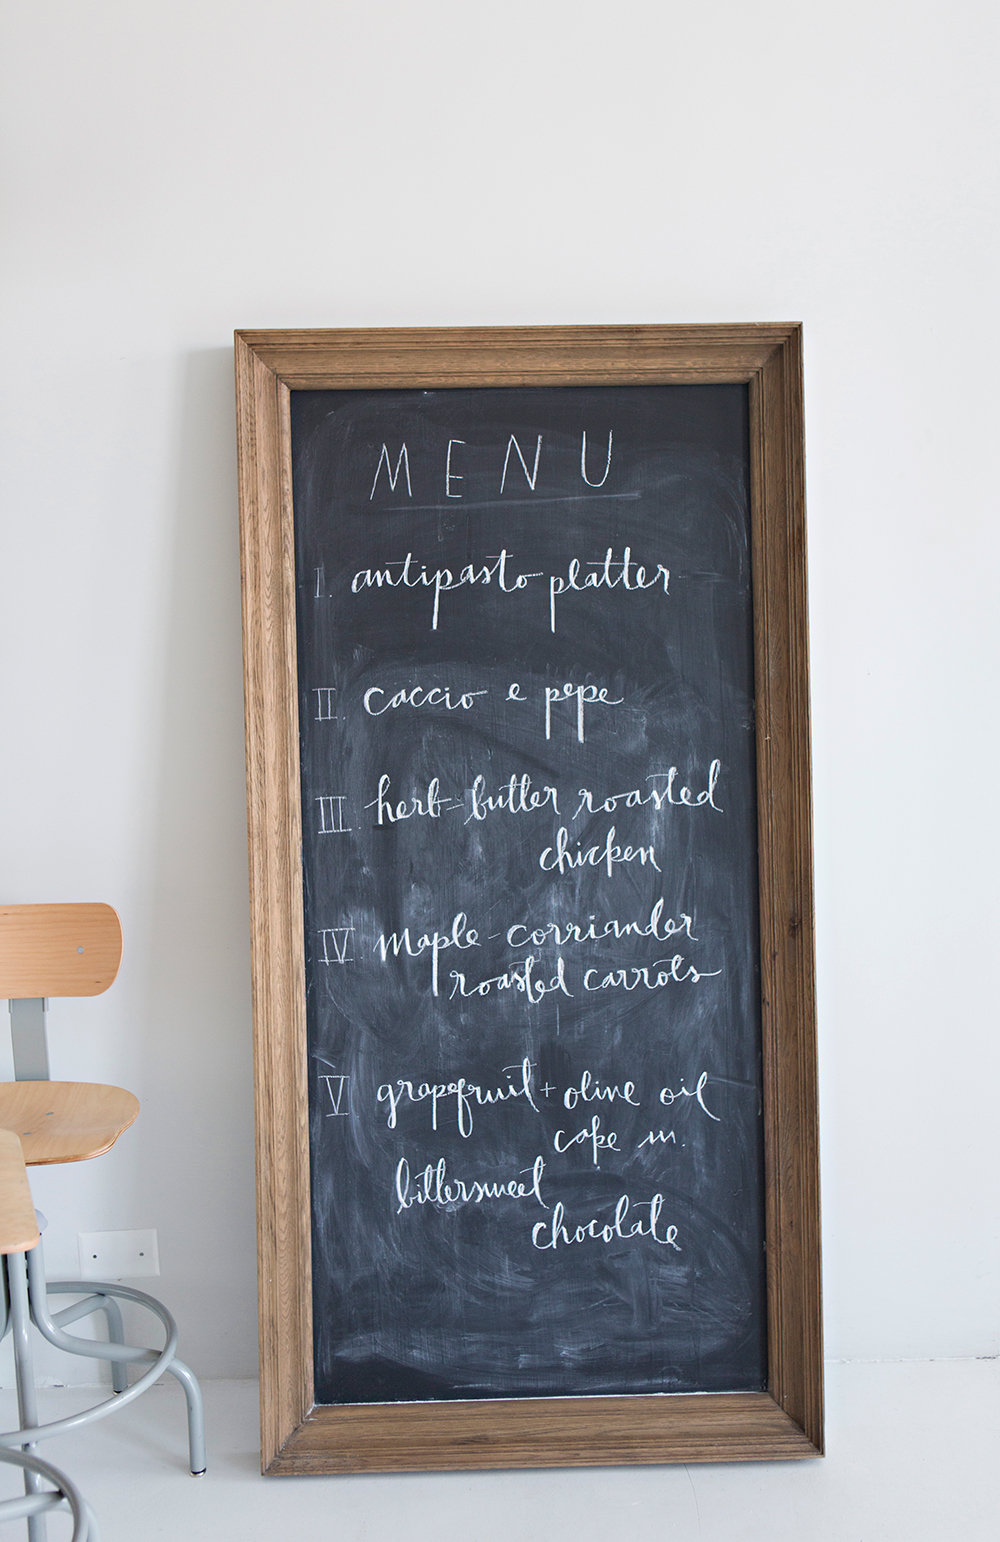 MENU
I. antipasto platter
II. caccio e pepe
III. herb-butter roasted
chicken
IV. maple-corriander
roasted carrots
V grapefruit + olive oil
cake in
bittersweet
chocolate